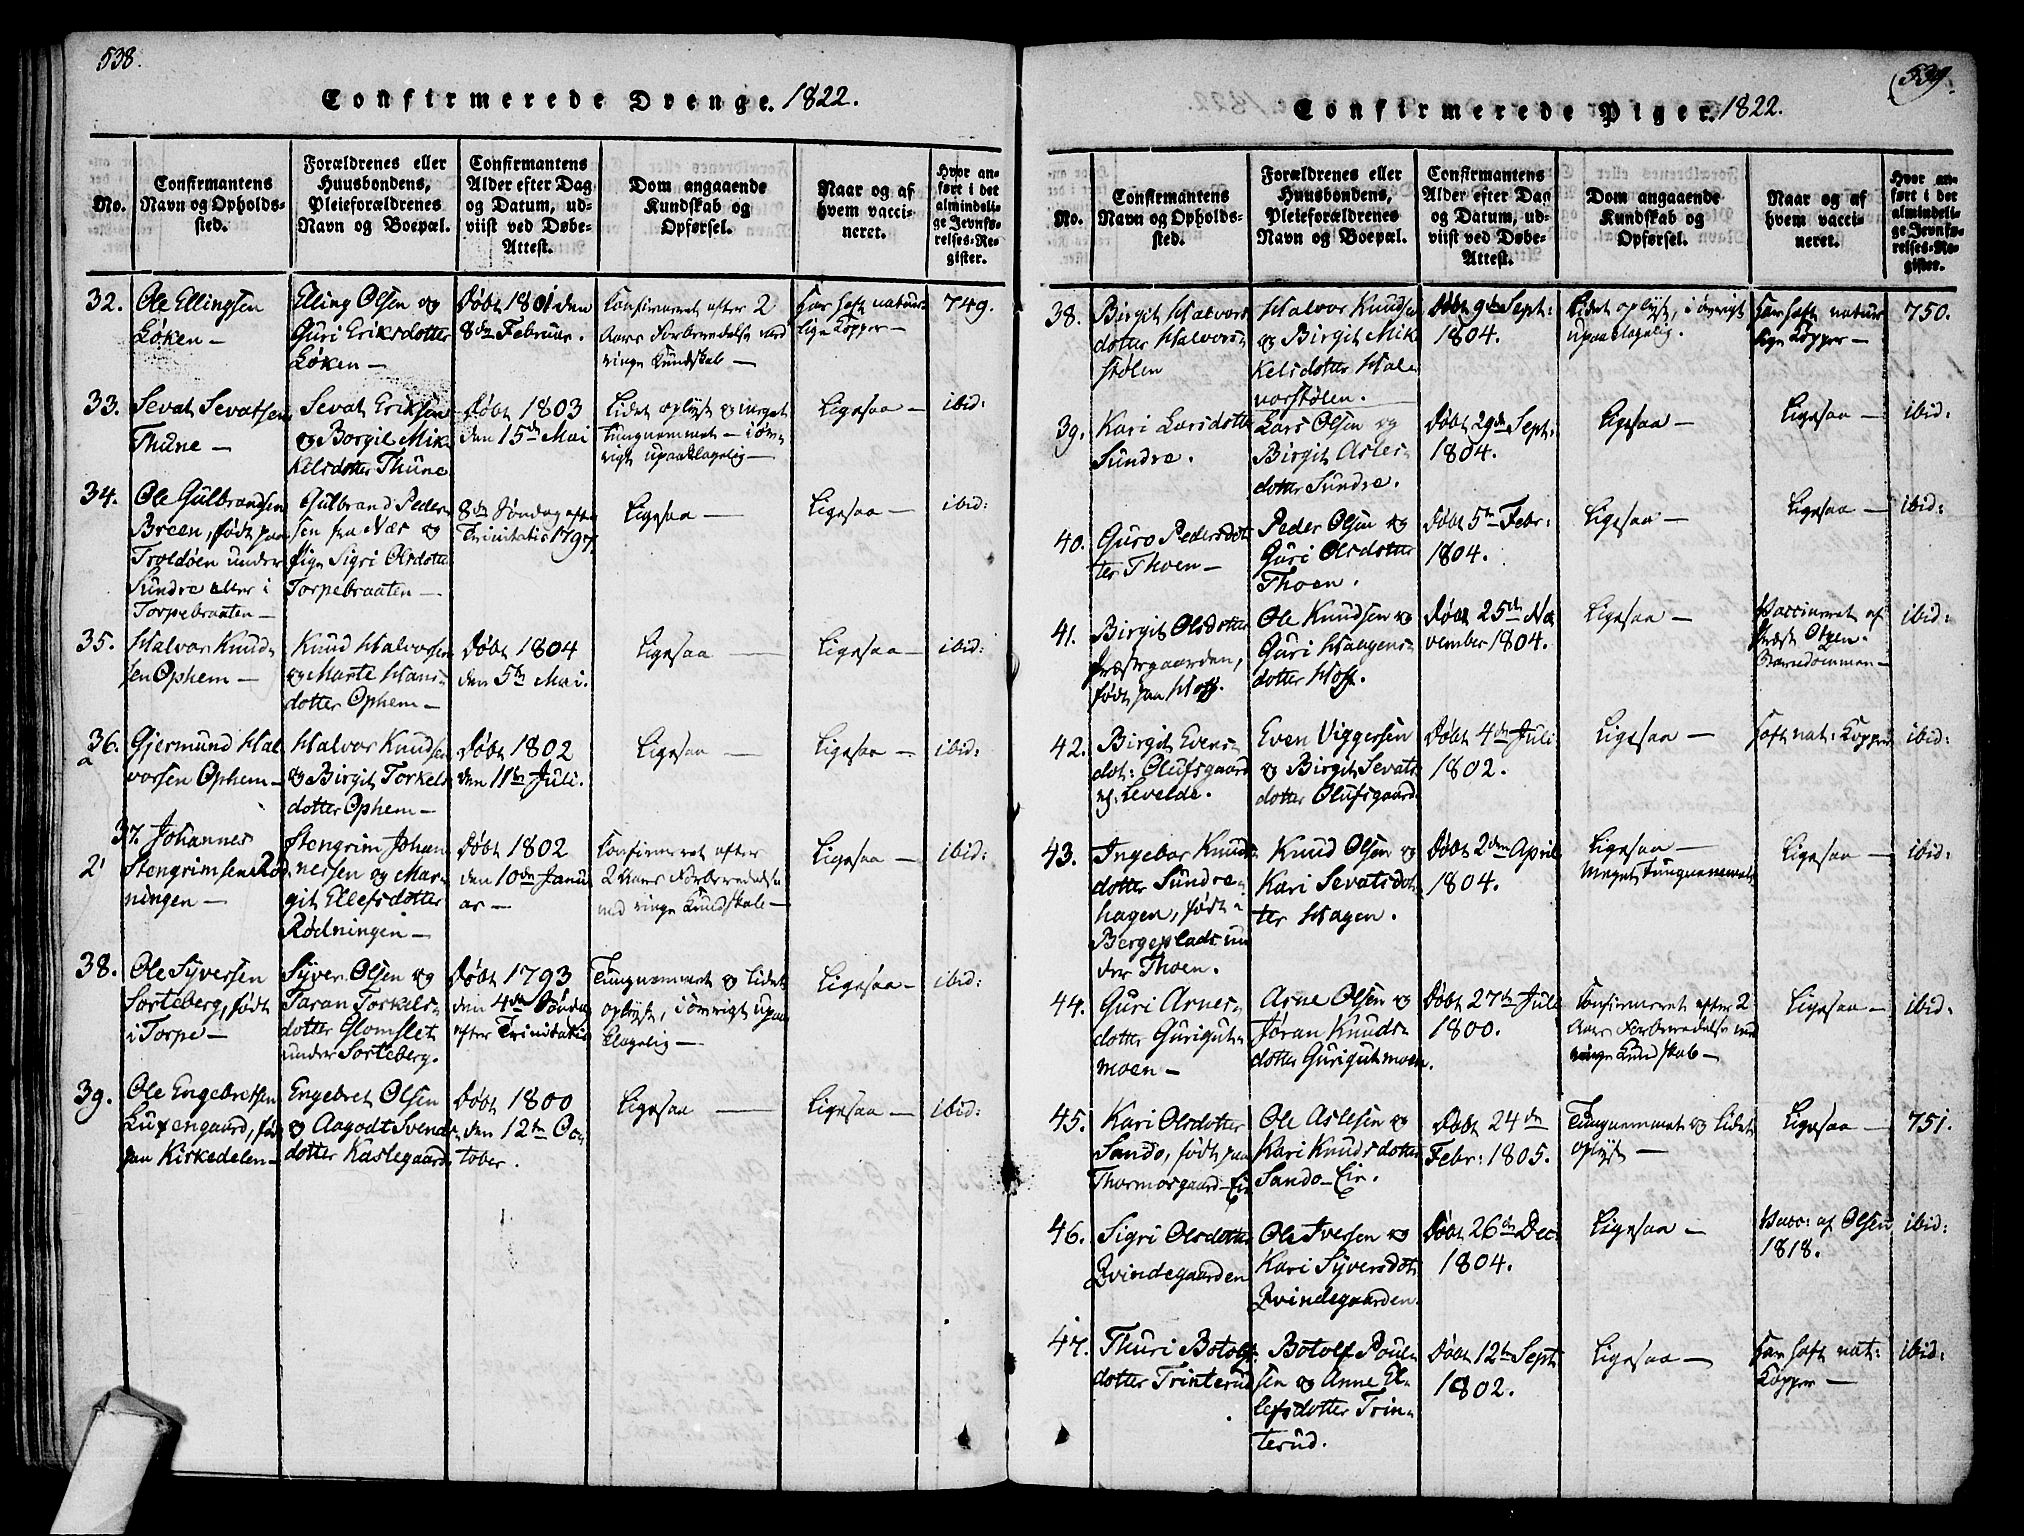 538.
Confirmerede Drenge. 1822.
No.
Confirmantens
Navn og Opholds-
sted.
Forældrenes eller
Huusbondens,
Pleieforældrenes
Navn og Boepæl.
Confirmantens
Alder efter Dag
og Datum, ud-
viist ved Døbe-
Attest.
Dom angaaende
Kundskab og
Opførsel.
Naar og af
hvem vacci-
neret.
Hvor an-
ført i det
almindeli-
ge Jevnfø-
relses-Re-
gister.
32.
Ole Ellingsen
Løken —
Elling Olsen og
Guri Eriksdotter
Løken —
Døbt 1801 den
8de Februar.
Confirmeret efter 2
Aars Forberedelse med
ringe Kundskab —
Har haft natur-
lige Kopper —
749.
33.
Sevat Sevatsen
Thune —
Sevat Eriksen
og Borgil Mik-
kelsdotter Thune
Døbt 1803
den 15de Mai
Lidet oplyst og meget
tungnemmet — iøv-
rigt upaaklagelig —
Ligesaa —
ibid:
34.
Ole Gulbrandsen
Breen, født paa
Troldøen under
Sundre eller i
Torpebraaten —
Gulbrand Peder-
sen fra Næs og
Pige Sigri Olsdotter
Torpebraaten —
8de Søndag efter
Trinitatis 1797.
Ligesaa —
Ligesaa —
ibid:
35.
Halvor Knud-
sen Ophem —
Knud Halvorsen
og Marte Hans-
dotter Ophem —
Døbt 1804
den 5te Mai.
Ligesaa —
Ligesaa —
ibid:
36.
a
Gjermund Hal-
vorsen Ophem —
Halvor Knudsen
og Birgit Torkels-
dotter Ophem —
Døbt 1802
den 11te Juli.
Ligesaa —
Ligesaa —
ibid:
37. Johannes
Stengrimsen Rød-
ningen —
Stengrim Johan-
nessen og Mar-
git Ellefsdotter
Rødningen —
Døbt 1802
den 10de Janu-
ar —
Confirmeret efter
2 Aars Forberedelse
med ringe Kundskab —
Ligesaa —
ibid:
38.
Ole Syversen
Sorteberg, født
i Torpe —
Syver Olsen og
Taran Torkels-
dotter Glomslet
under Sorteberg.
Døbt 1793
den 4de Søndag
efter Trinitatis
Tungnemmet og lidet
oplyst, iøvrigt upaa-
klagelig —
Ligesaa —
ibid:
39.
Ole Engebretsen
født
paa Kirkedelen —
Engebret Olsen
og Aagodt Svends-
dotter Kaslegaard
Døbt 1800
den 12te Oc-
tober.
Ligesaa —
Ligesaa —
ibid:
539.
Confirmerede Piger. 1822.
No.
Confirmantens
Navn og Opholds-
sted.
Forældrenes eller
Huusbondens,
Pleieforældrenes
Navn og Boepæl.
Confirmantens
Alder efter Dag
og Datum, ud-
viist ved Døbe-
Attest.
Dom angaaende
Kundskab og
Opførsel.
Naar og af
hvem vacci-
neret.
Hvor an-
ført i det
almindeli-
ge Jevnfø-
relses-Re-
gister.
38.
Birgit Halvors-
dotter Halvors-
stølen
Halvor Knudsen
og Birgit Mik-
kelsdotter Hal-
vorstølen.
Døbt 9de Sept:
1804.
Lidet oplyst, i øvrigt
upaaklagelig.
Har haft natur-
lige Kopper —
750.
39.
Kari Larsdotter
Sundre.
Lars Olsen og
Birgit Asles-
dotter Sundre.
Døbt 29de Sept:
1804.
Ligesaa —
Ligesaa —
ibid:
40.
Guro Pedersdot-
ter Thoen —
Peder Olsen og
Guri Olsdotter
Thoen.
Døbt 5te Febr:
1804.
Ligesaa —
Ligesaa —
ibid:
41.
Birgit Olsdotter
Præstegaarden,
født paa Hoff.
Ole Knudsen og
Guri Haagens-
dotter Hoff.
Døbt 25de No-
vember 1804.
Ligesaa —
Vaccineret af
Præst
Barndommen —
ibid:
42.
Birgit Evens-
dot: Olufsgaard
Levelde.
Even Viggersen
og Birgit Sevats-
dotter Olufsgaard.
Døbt 4de Juli
1802.
Ligesaa —
Haft nat: Kopper
ibid:
43.
Ingebor Knuds-
dotter Sundre-
hagen, født i
Bergeplads un-
der Thoen.
Knud Olsen og
Kari Sevatsdot-
ter Hagen.
Døbt 2den April
1804.
Ligesaa —
Meget Tungnemmet
Ligesaa —
ibid:
44.
Guri Arnes-
dotter Gurigut-
moen —
Arne Olsen og
Jøran Knuds-
dotter Gurigutmoen.
Døbt 27de Juli
1800.
Confirmeret efter 2
Aars Forberedelse med
ringe Kundskab —
Ligesaa —
ibid:
45.
Kari Olsdotter
Sando, født paa
Thormosgaard — Eie
Ole Aslesen og
Kari Knudsdotter
Sando — Eie.
Døbt 24de
Febr: 1805.
Tungnemmet og lidet
oplyst —
Ligesaa —
751.
46.
Sigri Olsdotter
Qvindegaarden
Ole Iversen og
Kari Syversdot:
Qvindegaarden.
Døbt 26de Dec:
1804.
Ligesaa —
Vacc: af Olsen
1818.
ibid:
47.
Thuri Botolfs-
dotter Trinterud
Botolf Poul-
sen og Anne El-
lefsdotter Trin-
terud.
Døbt 12te Sept:
1802.
Ligesaa —
Har haft nat:
Kopper —
ibid: